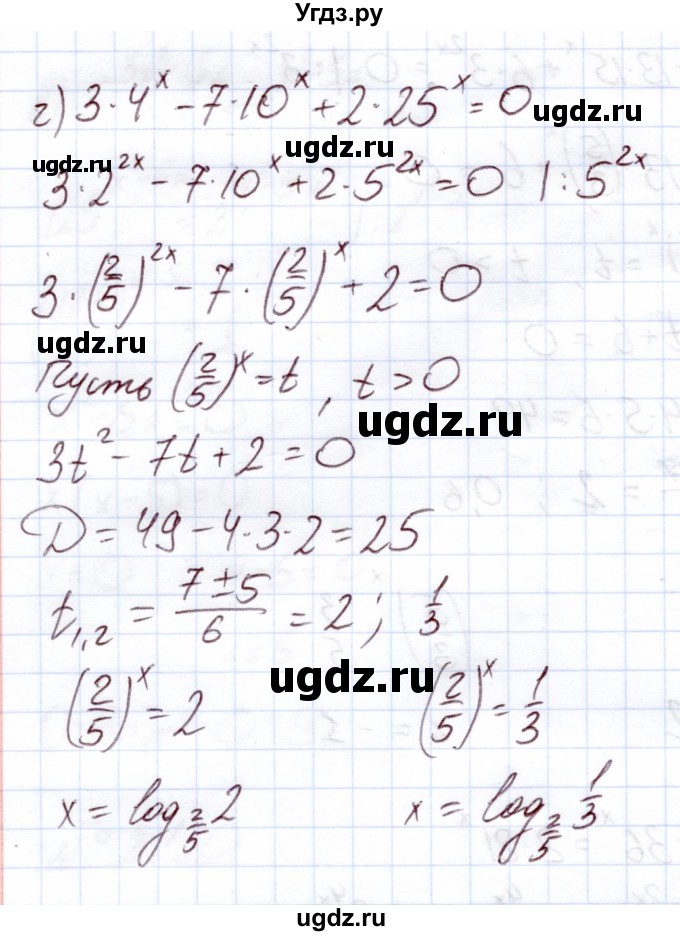 Угдз.ру
г) 3·4^x − 7·10^x + 2·25^x = 0
ugdz.ru
ugdz.ru
ugdz.ru
3·2^{2x} − 7·10^x + 2·5^{2x} = 0 | : 5^{2x}
3·(2/5)^{2x} − 7·(2/5)^x + 2 = 0
ugdz.ru
Пусть (2/5)^x = t, t > 0
ugdz.ru
3t^2 − 7t + 2 = 0
D = 49 − 4·3·2 = 25
t_{1,2} = (7 ± 5)/6 = 2; 1/3
ugdz.ru
(2/5)^x = 2 (2/5)^x = 1/3
x = log_{2/5} 2 x = log_{2/5} 1/3
ugdz.ru